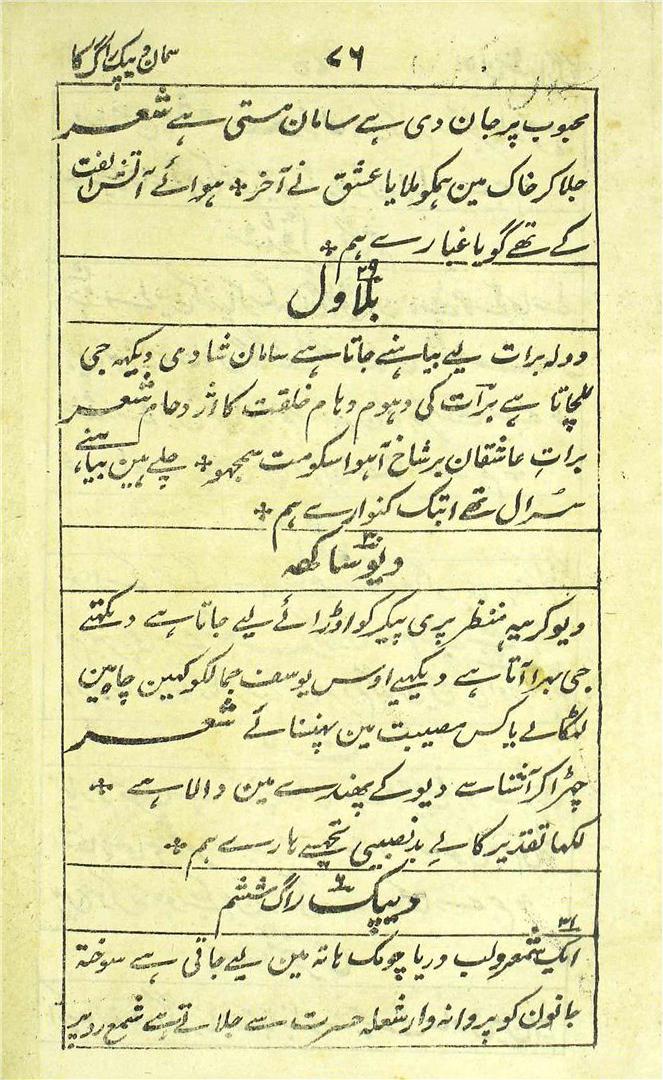 ۷۶
سمان دیپک راگ کا
محبوب پر جان دی ہے سامان ہستی ہے شعر
جلا کر خاک مین ہمکو ملایا عشق نے آخر ٭ ہوائے آتش الفت
کے تھے گویا غبارے ہم ٭
۲۹
بلاول
دولہ برات لیے بیاہنے جاتا ہے سامان شادی دیکہہ جی
للچاتا ہے برات کی دہوم دہام خلقت کا اژدحام شعر
برات عاشقان بر شاخ آہو اسکو مت سمجھو ٭ چلے ہین بیاہنے
سسرال تھے ابتک کنوارے ہم ٭
۳۰
دیوساکھہ
دیو کریہہ منظر پری پیکر کو اوڑائے لیے جاتا ہے دیکھتے
جی بہرا آتا ہے دیکہیے اوس یوسف جمالکو کہین چاہ مین
لٹکائے یا کس مصیبت مین پہنسائے شعر
چہڑا کر آشنا سے دیو کے پھندے مین ڈالا ہے ٭
لکہا تقدیر کا لے بدنصیبی تجھسے ہارے ہم ٭
دیپک راگ ششم
۶
۳۱
ایک شمعرو لب دریا چومک ہاتہ مین لیے جاتی ہے سوختہ
جانون کو پروانہ وار شعلہ حسرت سے جلاتی ہے شمع رو پر